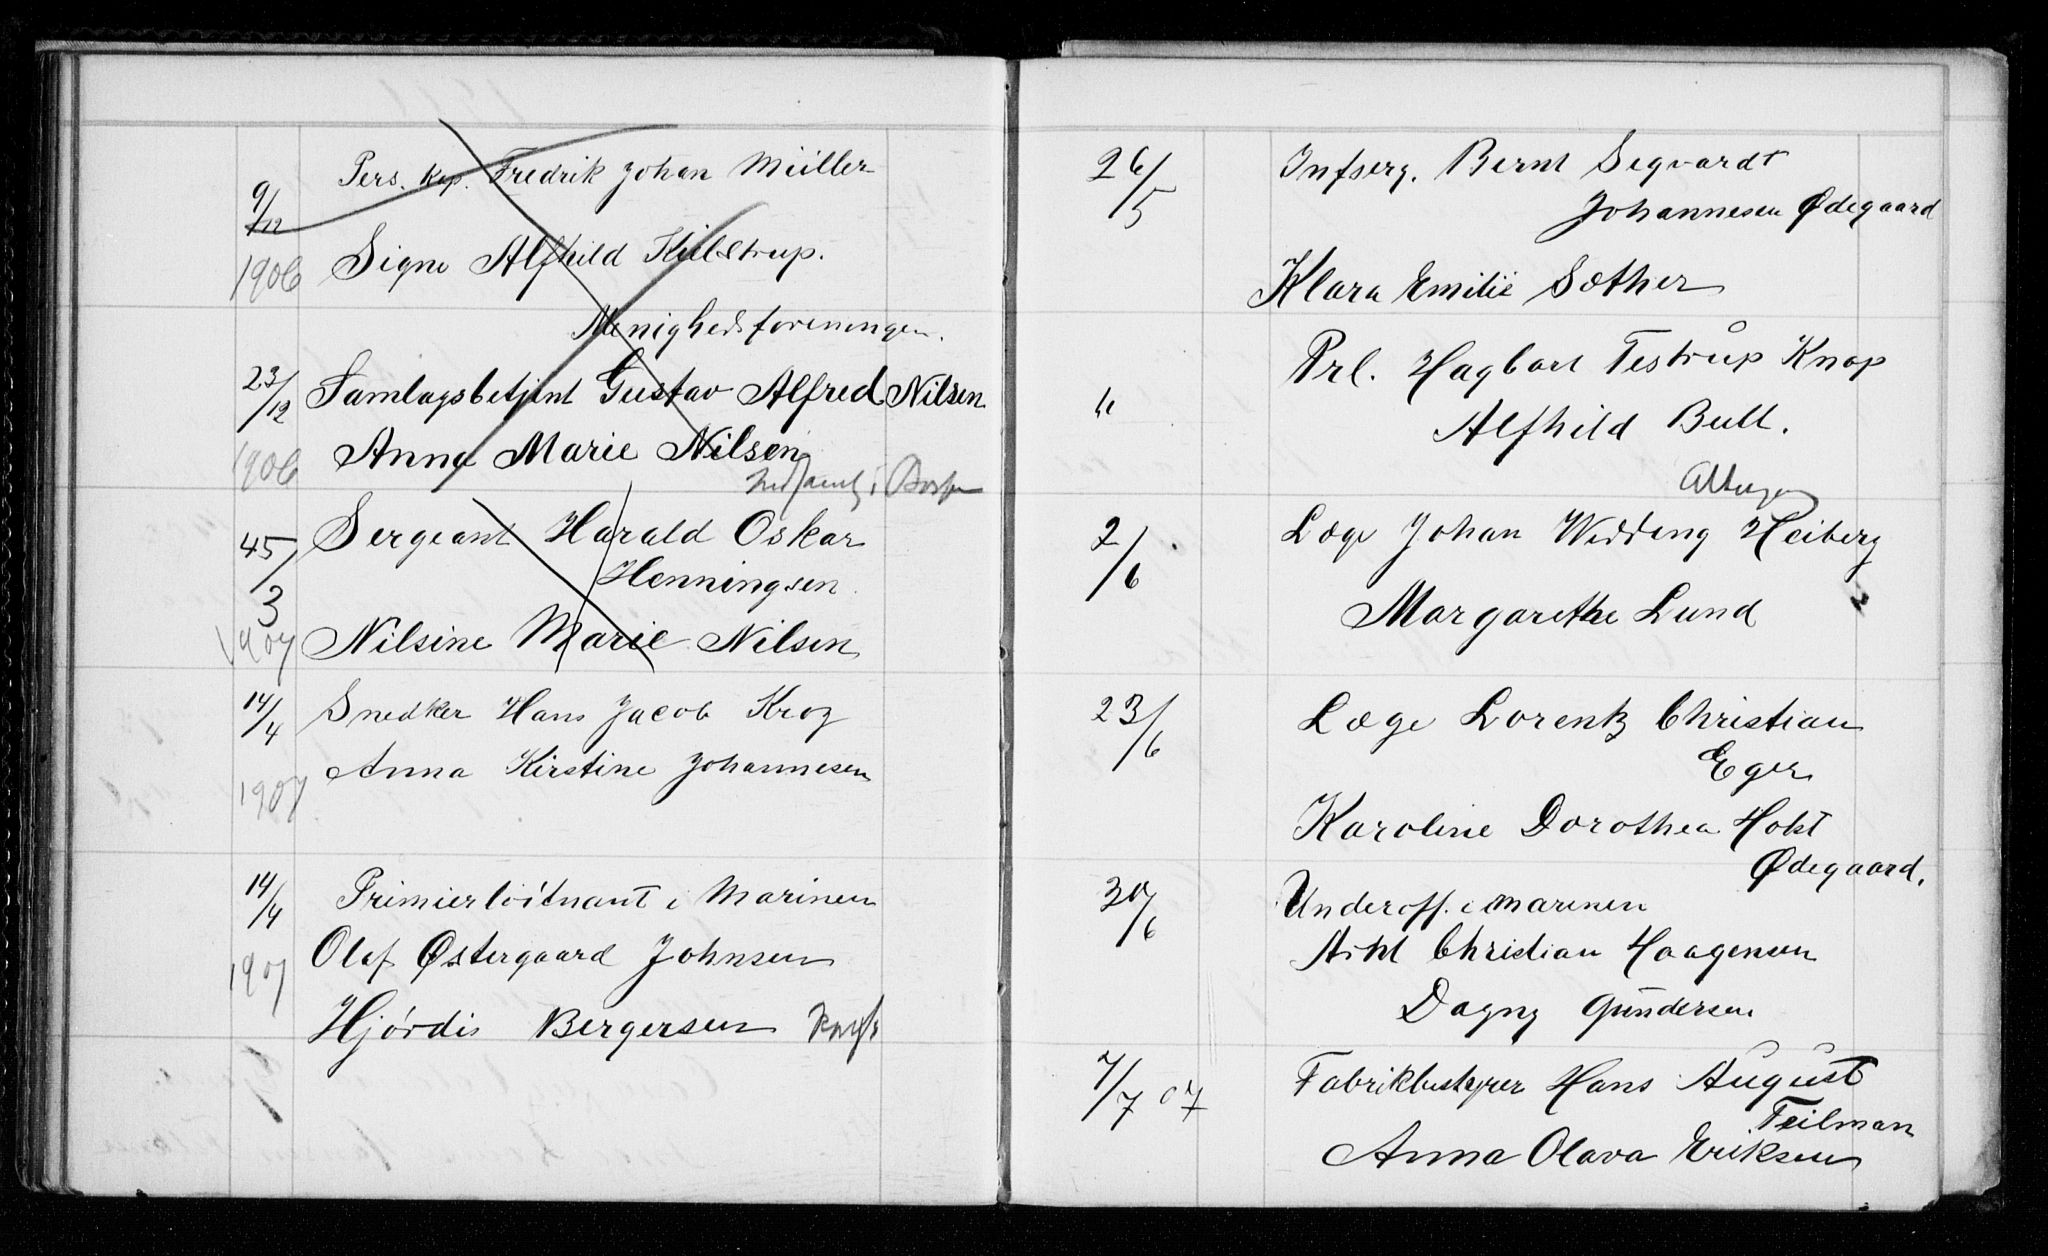 9/12 Pers. kap. Fredrik Johan Müller
1906 Signe Alfhild Kielstrup.
Menighedsforeningen.
23/12 Samlagsbetjent Gustav Alfred Nilsen
1906 Anna Marie Nilsen
Sergeant Harald Oskar
Henningsen
3
1907 Nilsine Marie Nilsen
14/4 Snedker Hans Jacob Krog
Anna Kirstine Johannesen
1907
14/4 Primierløitnant i Marinen
1907 Olaf Østergaard Johnsen
Hjørdis Bergersen
26/5 Infserg. Bernt Segvardt
Johannesen Ødegaard
Klara Emilie Sæther
" Prl. Hagbart Testrup Knap
Alfhild Bull.
2/6 Læge Johan Widding Heiberg
Margarethe Lund
23/6 Læge Lorentz Christian
Eger
Karoline Dorothea Holst
Ødegaard.
30/6 Underoff. i marinen
Christian Haagensen
Dagny Gundersen
7/7 07 Fabrikbestyrer Hans August
Teilman
Anna Olava Eriksen